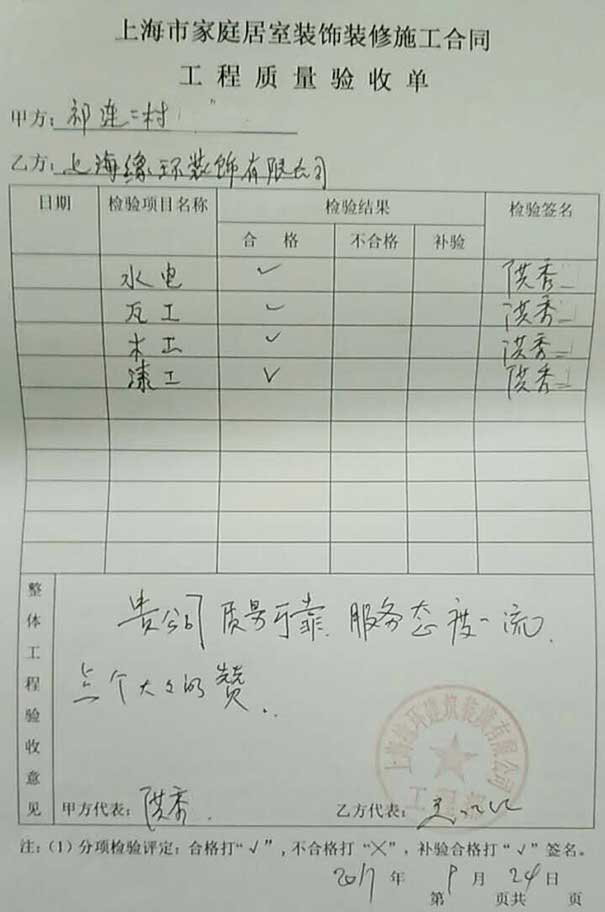 上海市家庭居室装饰装修施工合同
工程质量验收单
甲方：祁连二村
乙方：上海缘环装饰有限公司
日期 检验项目名称 检验结果 检验签名
合格 不合格 补验
水电 ✓ 洪秀
瓦工 ✓ 洪秀
木工 ✓ 洪秀
漆工 ✓ 洪秀
整体工程验收意见
贵公司质量可靠，服务态度一流，
点个大大的赞..
上海缘环建筑装潢有限公司
甲方代表：洪秀
乙方代表：
注：(1) 分项检验评定：合格打“√”，不合格打“╳”，补验合格打“√”签名。
2017年9月24日
第 页共 页